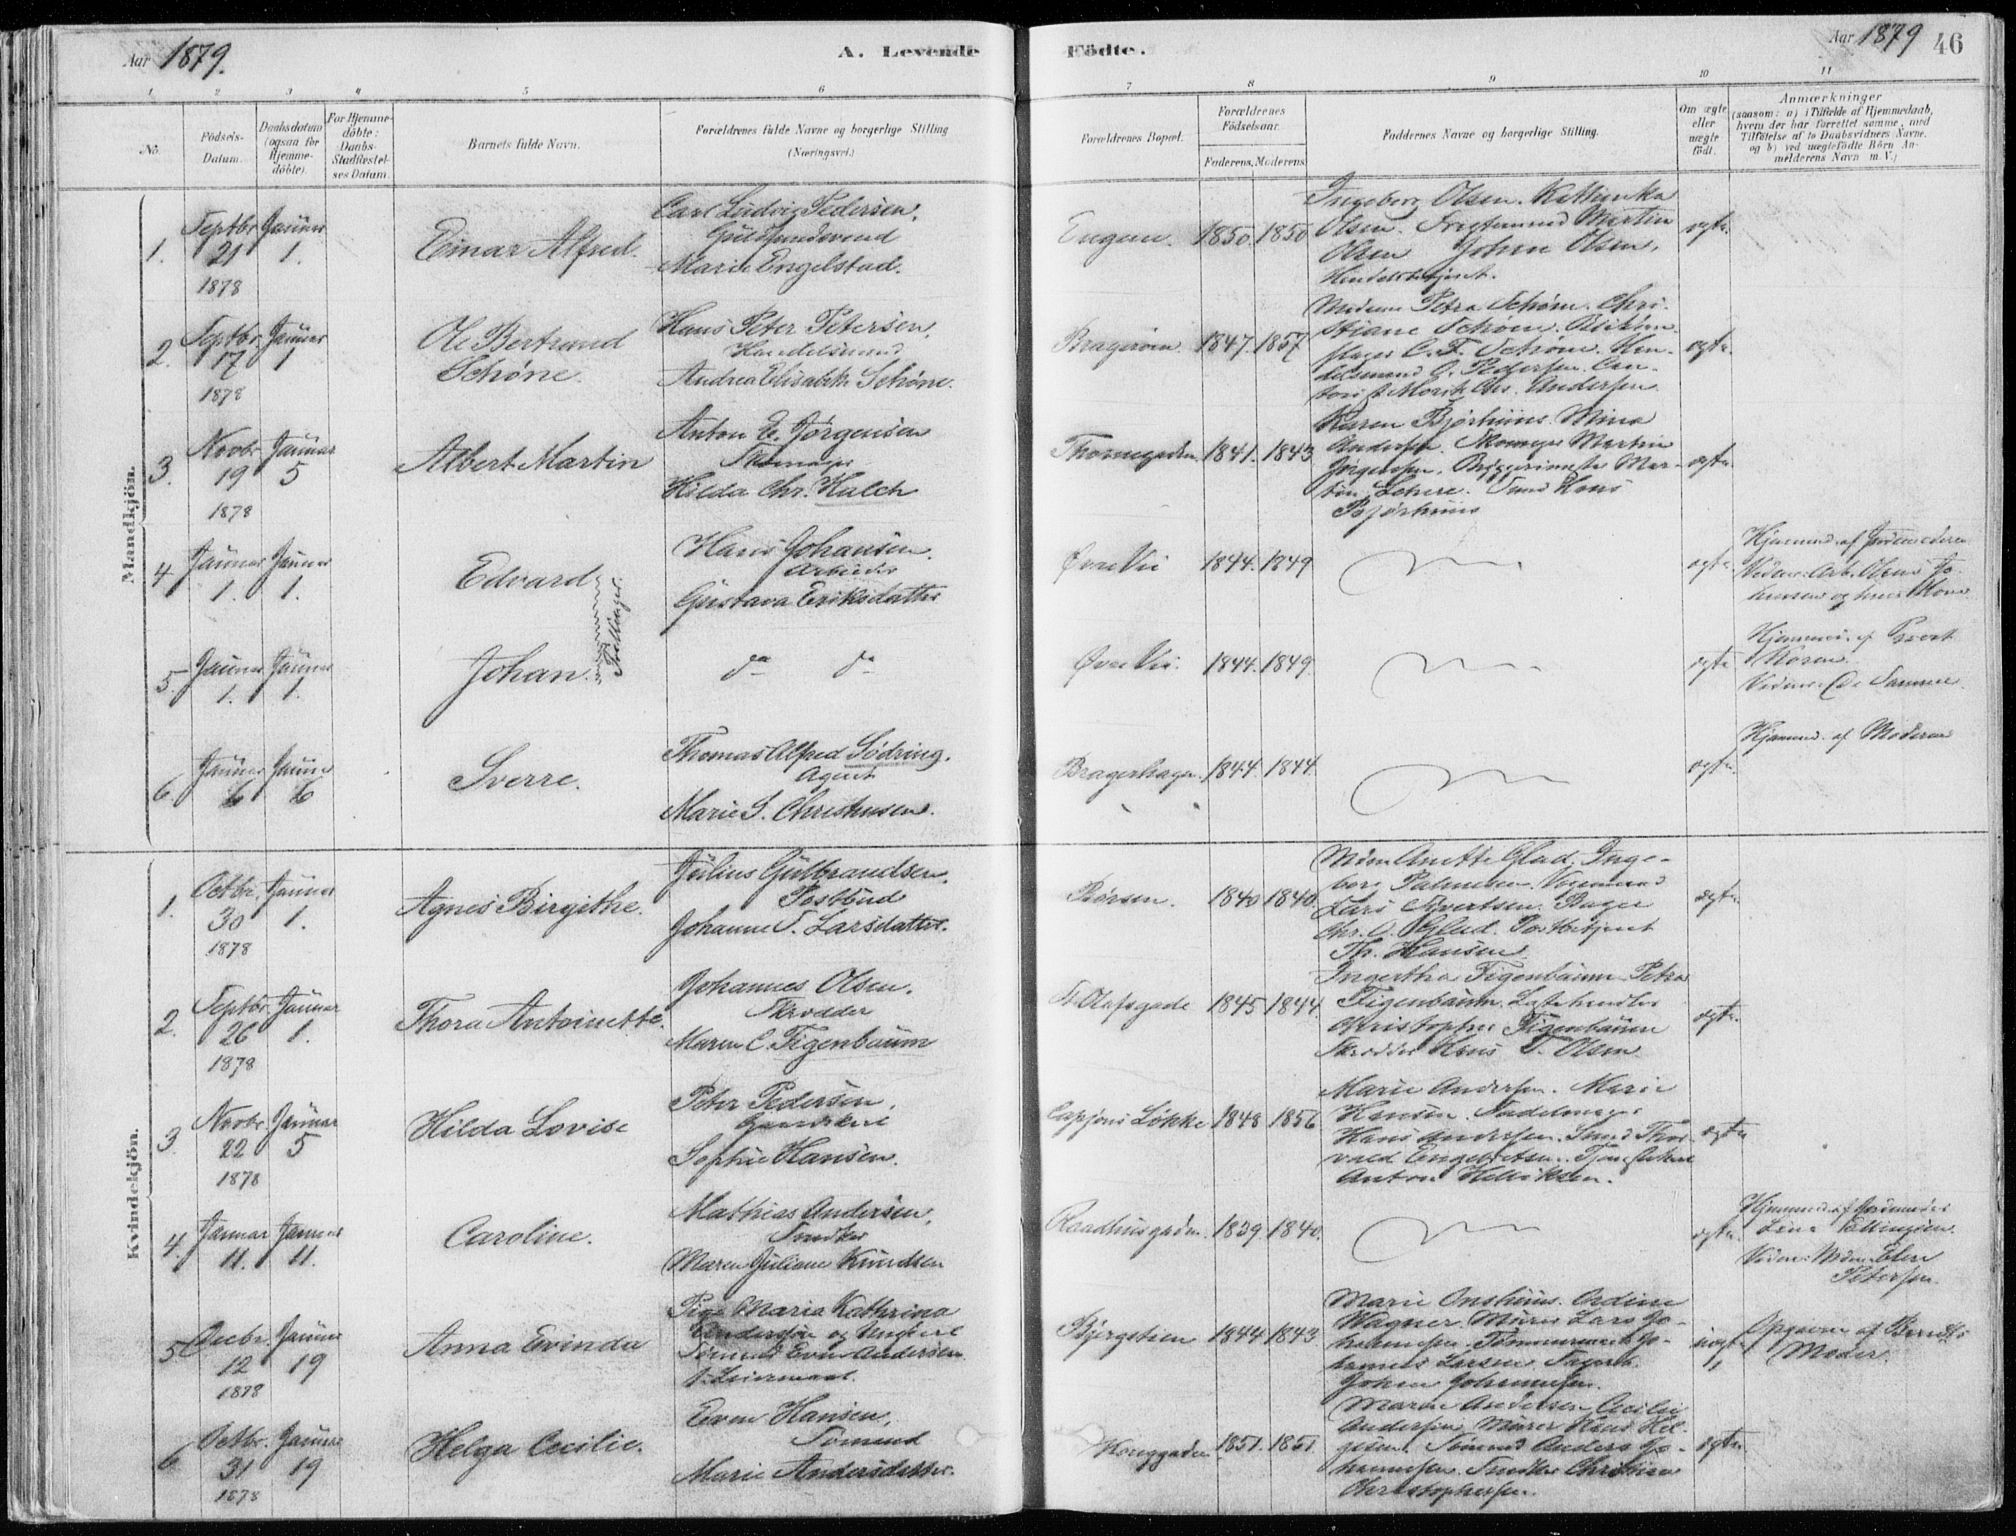 Aar 1879.
A. Levende
Födte.
Aar 1879
46
1 2 3 4 5 6
7 8 9 10 11
No.
Födsels-
Datum.
Daabsdatum
(ogsaa for
Hjemme-
döbte).
For Hjemme-
döbte:
Daabs-
Stadfæstel-
ses Datum.
Barnets fulde Navn.
Forældrenes fulde Navne og borgerlige Stilling
(Næringsvei.)
Forældrenes Bopæl.
Forældrenes
Födselsaar.
Faderens. Moderens.
Faddernes Navne og borgerlige Stilling.
Om ægte
eller
uægte
födt.
Anmærkninger
(saasom: a) i Tilfælde af Hjemmedaab,
hvem der har forrettet samme, med
Tilföielse af to Daabsvidners Navne,
og b) ved uægtefödte Börn An-
melderens Navn m. V.)
Mandkjön.
1. Septbr. 21 1878
Januar 1.
Einar Alfred.
Carl Ludvig Pedersen,
Guldsmedsvend
Marie Engelstad.
Engen. 1850. 1850
Ingeborg Olsen. Kathinka
Olsen. Martin
Olsen Johan Olsen,
ægte.
2. Septbr. 17 1878
Januar 1
Ole Bertrand
Schöne.
Hans Peter Petersen,
Handelsmand
Andrea Elisabeth Schöne.
Bragerøen. 1847. 1857
Madame Petra Schöne. Chri-
stiane Schöne.
C. F. Schöne. Han-
delsmand O. Pedersen. Con-
torist Moritz Chr. Andersen
ægte.
3. Novbr. 19 1878
Januar 5
Albert Martin
Anton E. Jørgensen
Skomager
Hilda Chr. Halch
Thornegaden. 1841. 1843
Karen Bjørhuus. Mina
Andersen. Skomager Martin
Jørgensen. Mar-
tin Smed Hans
Bjørhuus
ægte.
4 Januar 1.
Januar 1.
Edvard
Tvillinger
Hans Johansen.
Arbeider
Gustava Eriksdatter
Øvre Vei 1844. 1849
ægte.
Hjemmed. af Jordemoderen
Vidner: Arb. Hans Jo-
hansen og hans Kone.
5. Januar 1.
Januar 1.
Johan.
do do
Øvre Vei. 1844. 1849.
ægte
Hjemmed. af Provst
Koren.
Vidner: De Samme.
6 Januar 6
Januar 6
Sverre.
Thomas Alfred Sødring.
Agent
Marie S. Christensen.
Bragerhagen. 1844. 1844.
ægte.
Hjemmed. af Moderen
Kvindekjön.
1. Octbr. 30 1878
Januar 1.
Agnes Birgithe.
Julius Gulbrandsen.
Postbud
Johanne T. Larsdatter.
Børsen. 1840 1840.
Mdm Anette Glad. Inge-
borg
Lars Sivertsen. Bager
Chr. O. Glad. Postbetjent
Th. Hansen
ægte.
2. Septbr. 26 1878
Januar 1.
Thora Antoinette.
Johannes Olsen.
Skrædder
Maren C. Figenbaum
St. Olafsgade 1845 1844.
Figenbaum. Petra
Figenbaum. Lastehandler
Christopher Figenbaum
Skrædder Hans T. Olsen
ægte.
3. Novbr. 22 1878
Januar 5
Hilda Lovise
Peter Pedersen,
Sophie Hansen.
Cappjons Løkke 1848 1856
Marie Andersen. Marie
Hansen. Sadelmager
Hans Andersen. Smed Thor-
vald Engebretsen.
Anton Henriksen.
ægte
4. Januar 11.
Januar 11.
Caroline.
Mathias Andersen,
Snedker
Maren Juliane Knudsen
Raadhusgaden. 1839. 1840.
ægte.
Hjemmed. af Jordemoder
Lina Ellingsen.
Vidne: Mdm Elen
Petersen.
5 Decbr. 12 1878
Januar 19
Anna Evinda
Pige Maria Kathrina
Andersen og Ungkarl
Sømand Even Andersen
1. Leiermaal.
Bjergstien 1844. 1843
Marie Onshuus. Ordine
Wagner. Murer Lars Jo-
hannesen. Tømmermand Jo-
hannes Larsen
Johan Johannesen.
uægte
Opgaven af Barnets
Moder.
6 Octbr. 31 1878
Januar 19
Helga Cecilie.
Even Hansen,
Sømand
Marie Andersdatter.
Konggaden. 1851. 1851.
Maren Andersen Cecilie
Andersen. Murer Hans Hel-
gesen. Sømand Anders Jo-
hannesen. Snedker Christian
Christophersen.
ægte.